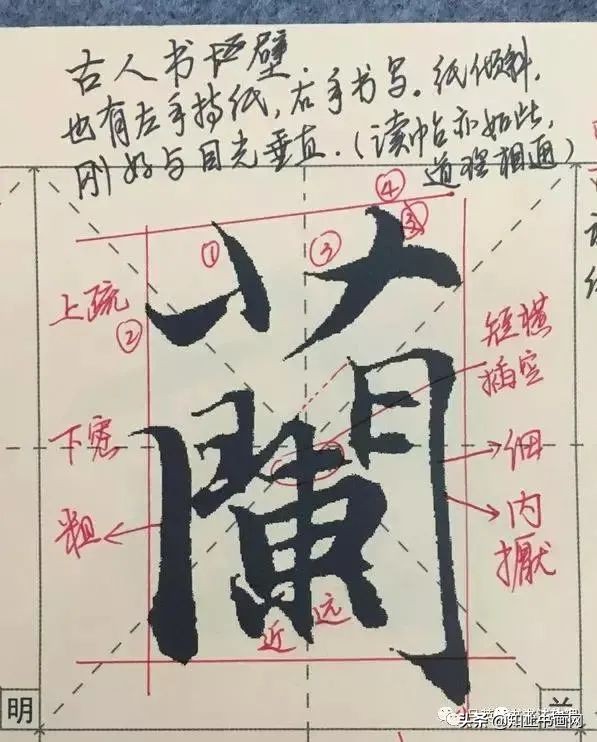 古人书于壁.
也有左手持纸,右手书写。纸倾斜,
刚好与目光垂直.(读帖亦如此,
道理相通)
④
① ③ ⑤
上疏
②
蘭
短横
插空
下宽
细
粗
内
擫
近 远
明
头条@知止书画网